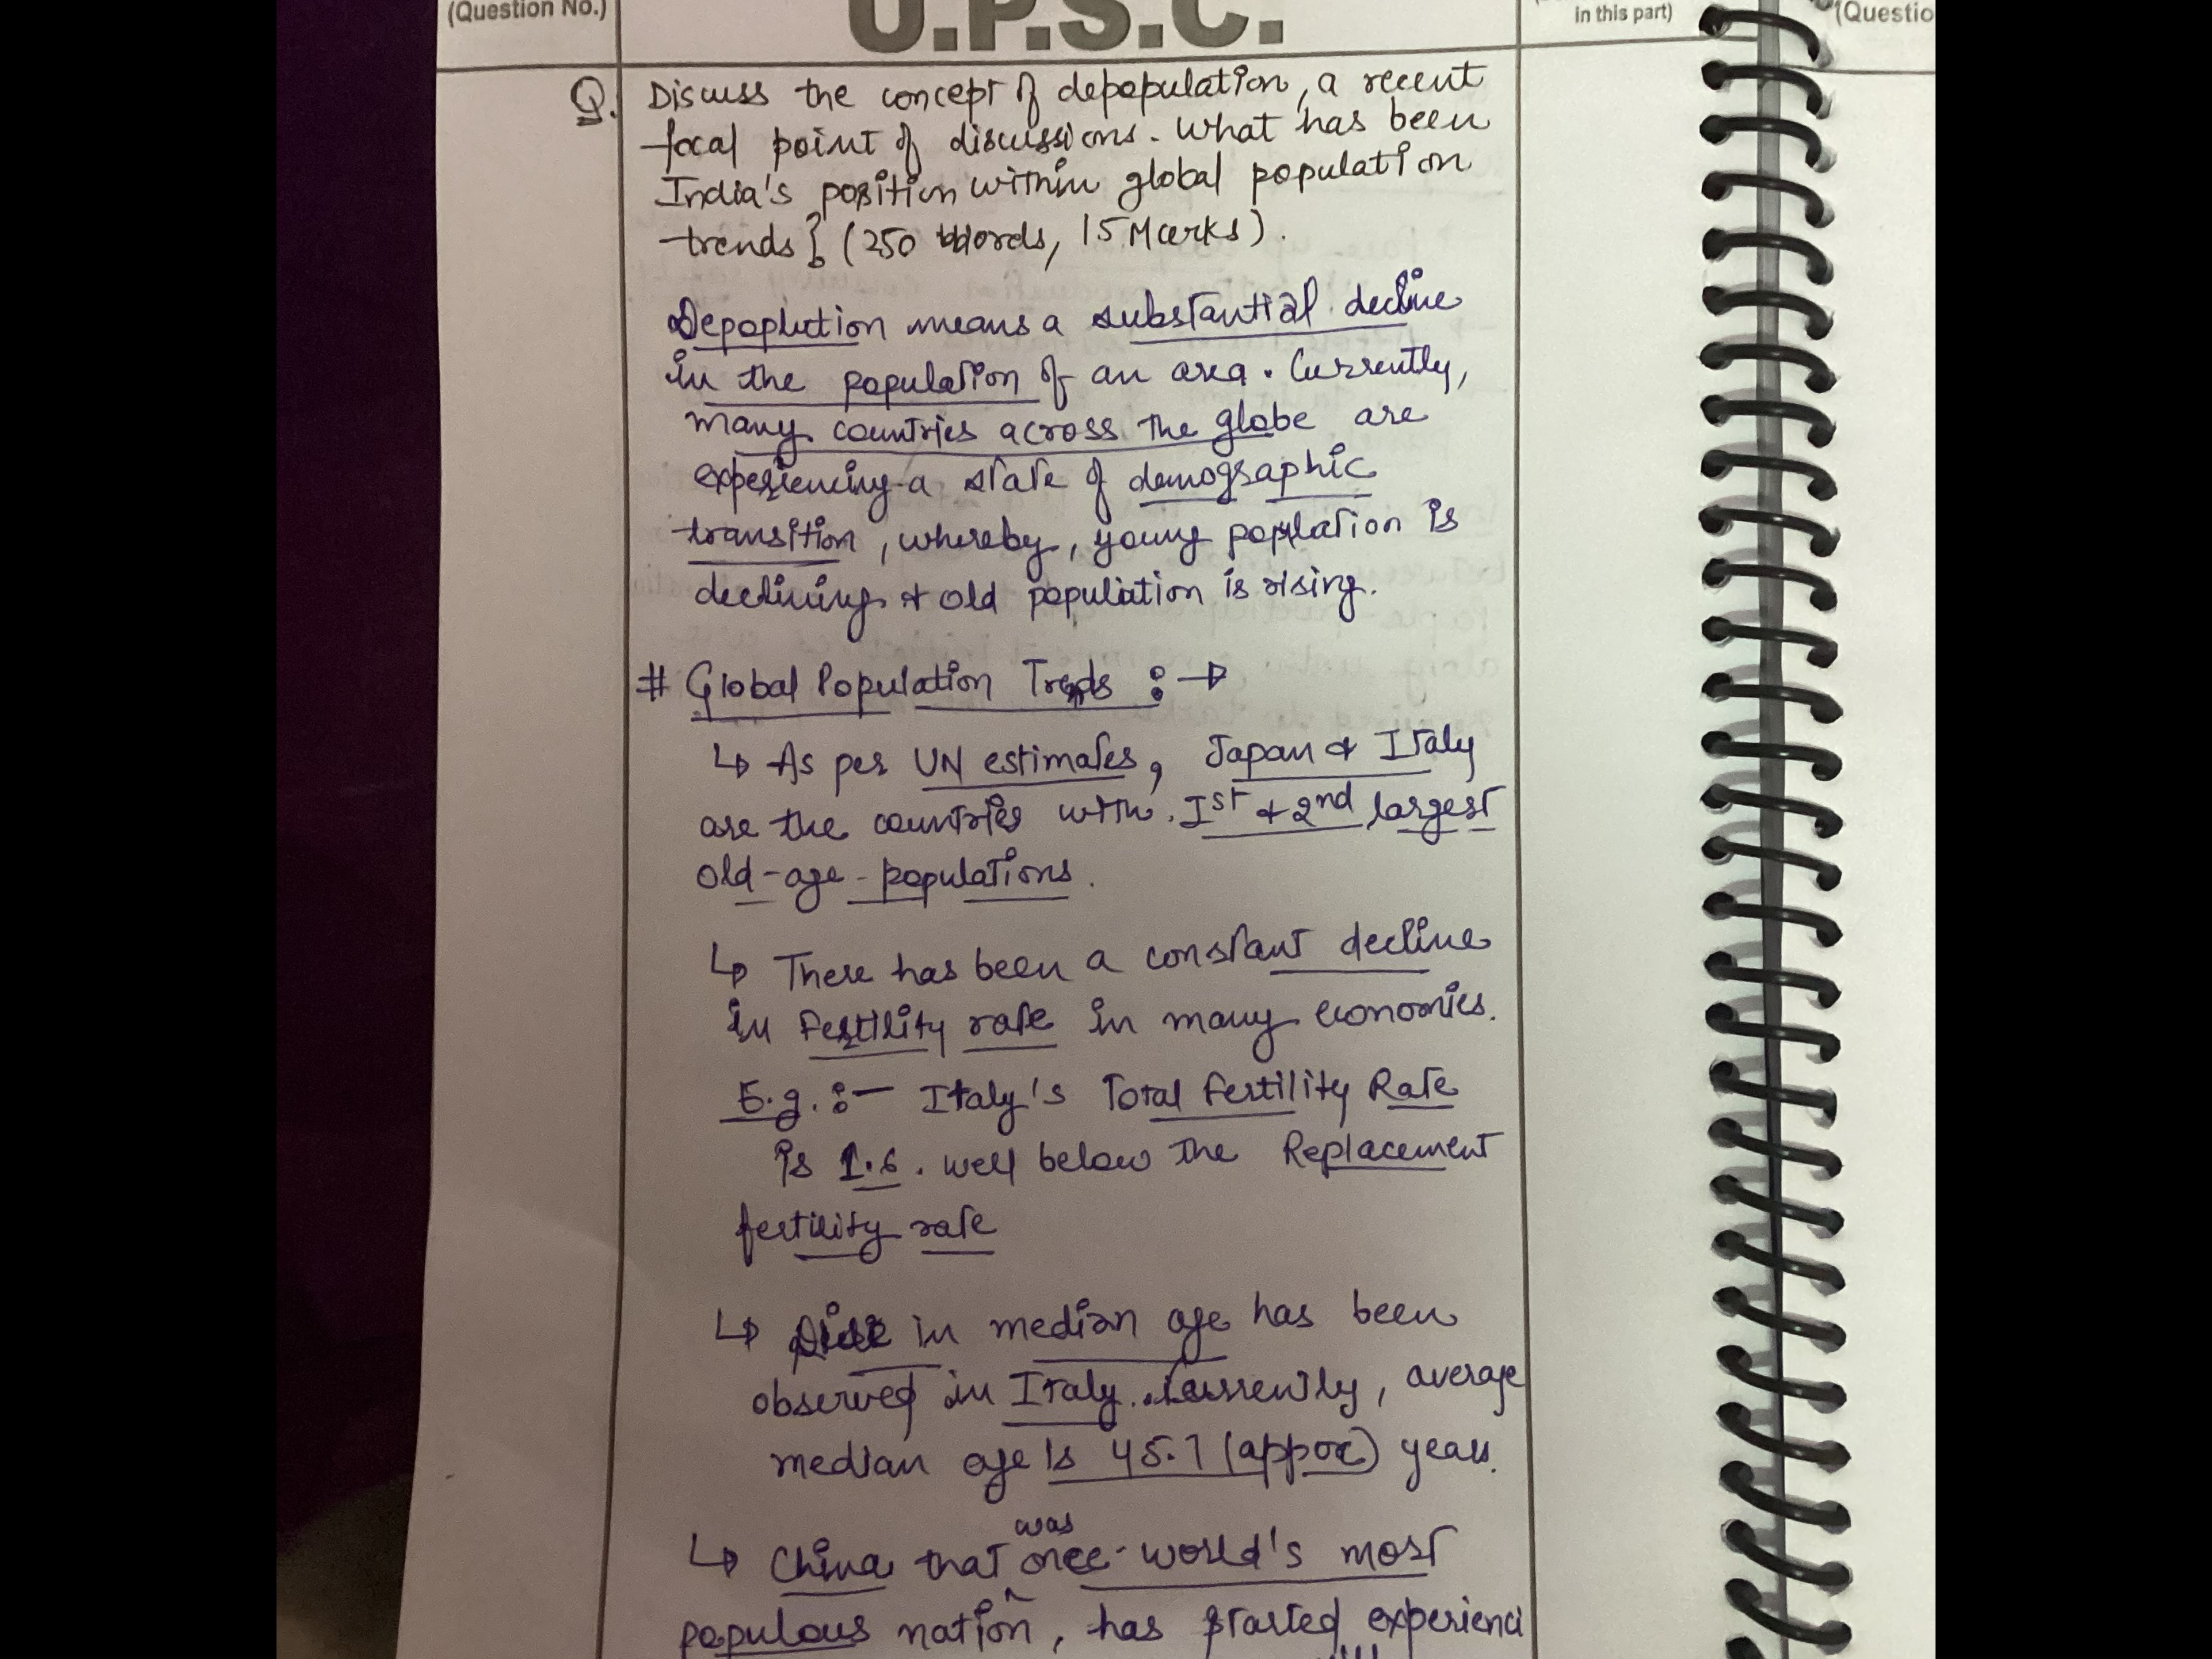 (Question No.)
U.P.S.C.
in this part)
(Questio
Q. Discuss the concept of depopulation, a recent
focal point of discussions. What has been
India's position within global population
trends? (250 Words, 15 Marks).
Depoplution means a substantial decline
in the population of an area. Currently,
many countries across the globe are
experiencing a state of demographic
transition, whereby, young population is
declining & old population is rising.
# Global Population Trends :→
↳ As per UN estimates, Japan & Italy
are the countries with Ist & 2nd largest
old-age-populations.
↳ There has been a constant decline
in Fertility rate in many economies.
E.g.:- Italy's Total Fertility Rate
is 1.6. well below the Replacement
fertility rate
↳ in median age has been
observed in Italy. Currently, average
median age is 45.7 (approx) years.
was
↳ China that once world's most
populous nation, has started experienci